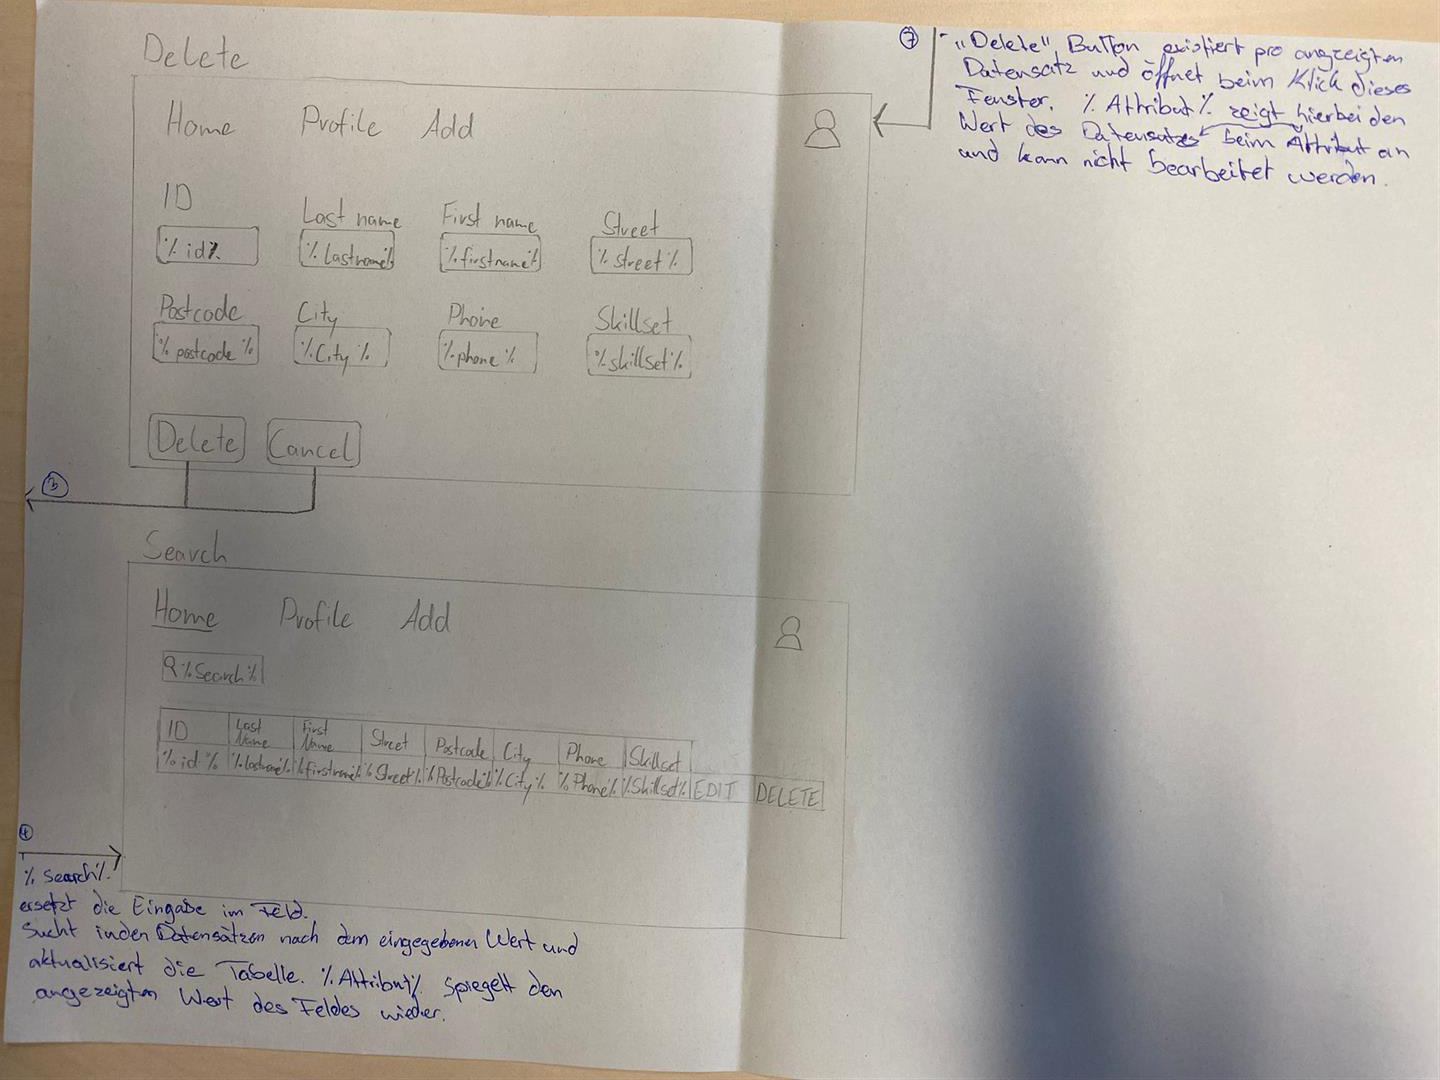 Delete
Home Profile Add
ID Last name First name Street
%id% %Lastname% %firstname% %street%
Postcode City Phone Skillset
%postcode% %City% %phone% %skillset%
Delete Cancel
3
7
"Delete" Button existiert pro angzeigten
Datensatz und öffnet beim Klick dieses
Fenster. %Attribut% zeigt hierbei den
Wert des Datensatzes beim Attribut an
und kann nicht bearbeitet werden.
Search
Home Profile Add
%Search%
ID Last Name First Name Street Postcode City Phone Skillset
%id% %lastname% %firstname% %Street% %Postcode% %City% %Phone% %Skillset% EDIT DELETE
4
%Search%
ersetzt die Eingabe im Feld.
Sucht in den Datensätzen nach dem eingegebenen Wert und
aktualisiert die Tabelle. %Attribut% spiegelt den
angezeigten Wert des Feldes wieder.